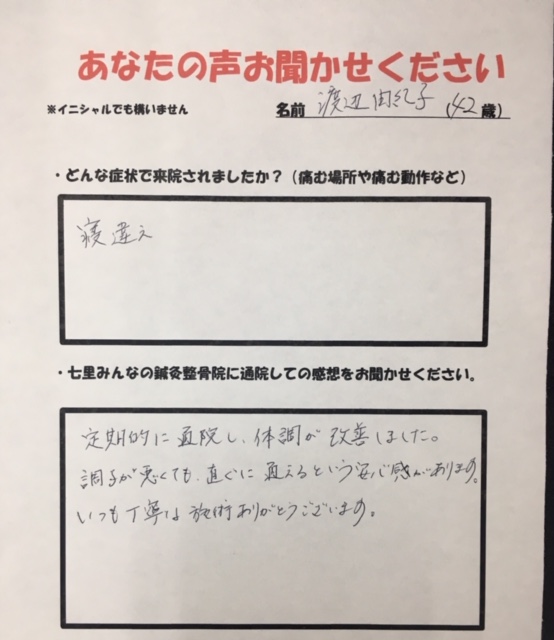 あなたの声お聞かせください
※イニシャルでも構いません 名前 渡辺由紀子 (42歳)
・どんな症状で来院されましたか？（痛む場所や痛む動作など）
寝違え
・七里みんなの鍼灸整骨院に通院しての感想をお聞かせください。
定期的に通院し、体調が改善しました。
調子が悪くても、直ぐに通えるという安心感があります。
いつも丁寧な施術ありがとうございます。